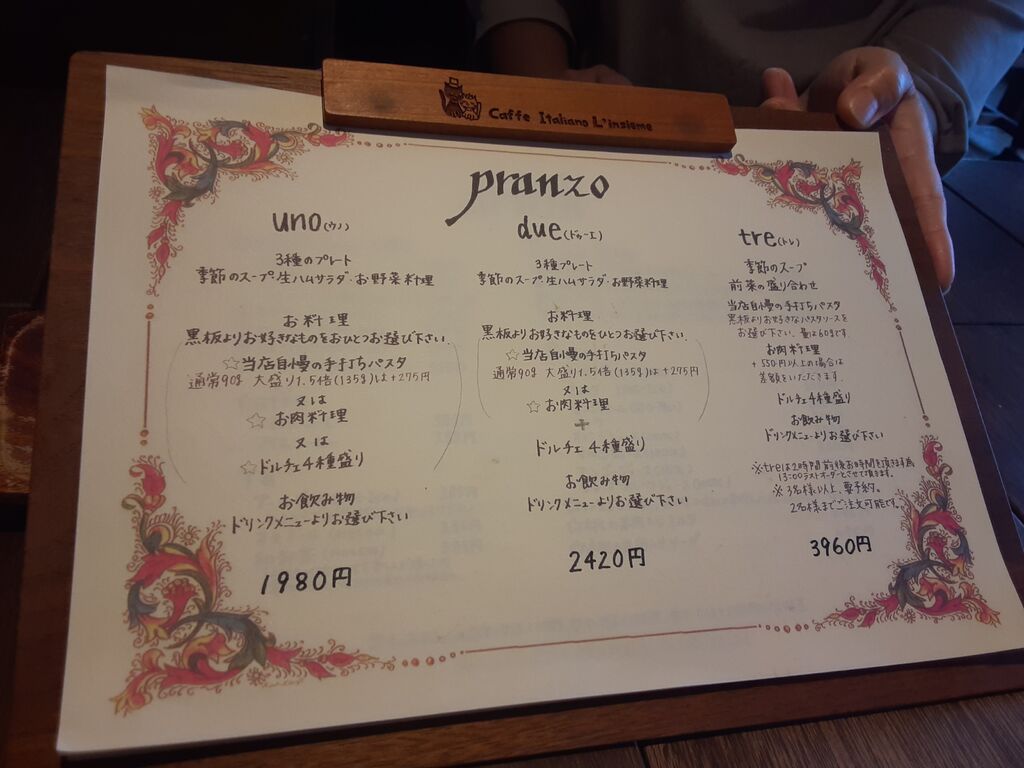 Caffe Italiano L'insieme
pranzo
uno(ウノ)
3種のプレート
季節のスープ・生ハムサラダ・お野菜料理
お料理
黒板よりお好きなものをおひとつお選び下さい。
☆当店自慢の手打ちパスタ
通常90g 大盛り1.5倍(135g)は+275円
又は
☆お肉料理
又は
☆ドルチェ4種盛り
お飲み物
ドリンクメニューよりお選び下さい
1980円
due(ドゥーエ)
3種プレート
季節のスープ・生ハムサラダ・お野菜料理
お料理
黒板よりお好きなものをひとつお選び下さい。
☆当店自慢の手打ちパスタ
通常90g 大盛り1.5倍(135g)は+275円
又は
☆お肉料理
+
ドルチェ4種盛り
お飲み物
ドリンクメニューよりお選び下さい
2420円
tre(トレ)
季節のスープ
前菜の盛り合わせ
当店自慢の手打ちパスタ
黒板よりお好きなパスタソースを
お選び下さい。量は60gです。
お肉料理
+550円以上の場合は
差額をいただきます。
ドルチェ4種盛り
お飲み物
ドリンクメニューよりお選び下さい
※treは2時間前後お時間を頂きます為
13:00ラストオーダーとさせて頂きます。
※3名様以上、要予約。
2名様までご注文可能です。
3960円